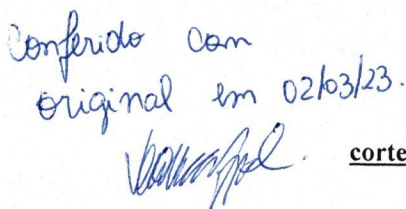 Conferido com
original em 02/03/23.
corte